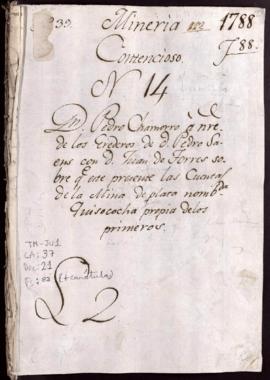 Mineria 1788
Contencioso. F. 88.
N. 14
Dn. Pedro Chamorro á nre
de los Erederos de d. Pedro Sa
ens con d. Juan de Torres so
bre q este precente las Cuentas
de la Mina de plata nombda
Quisecocha propia de los
primeros.
TM-JU1
CA: 37
Doc: 21
(+carátula)
L 2